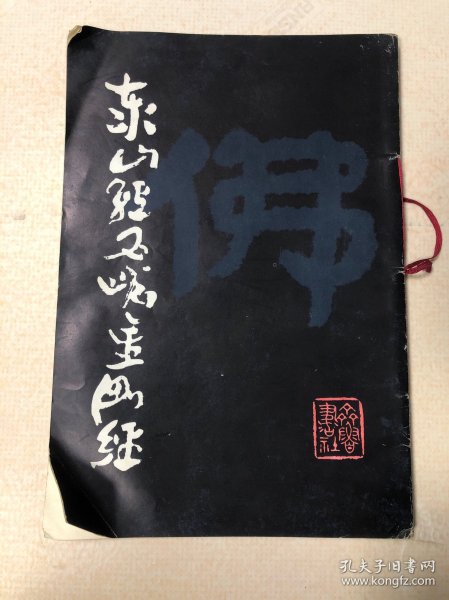 泰山经石峪金刚经
佛
齊魯
書社
孔夫子旧书网
www.kongfz.com